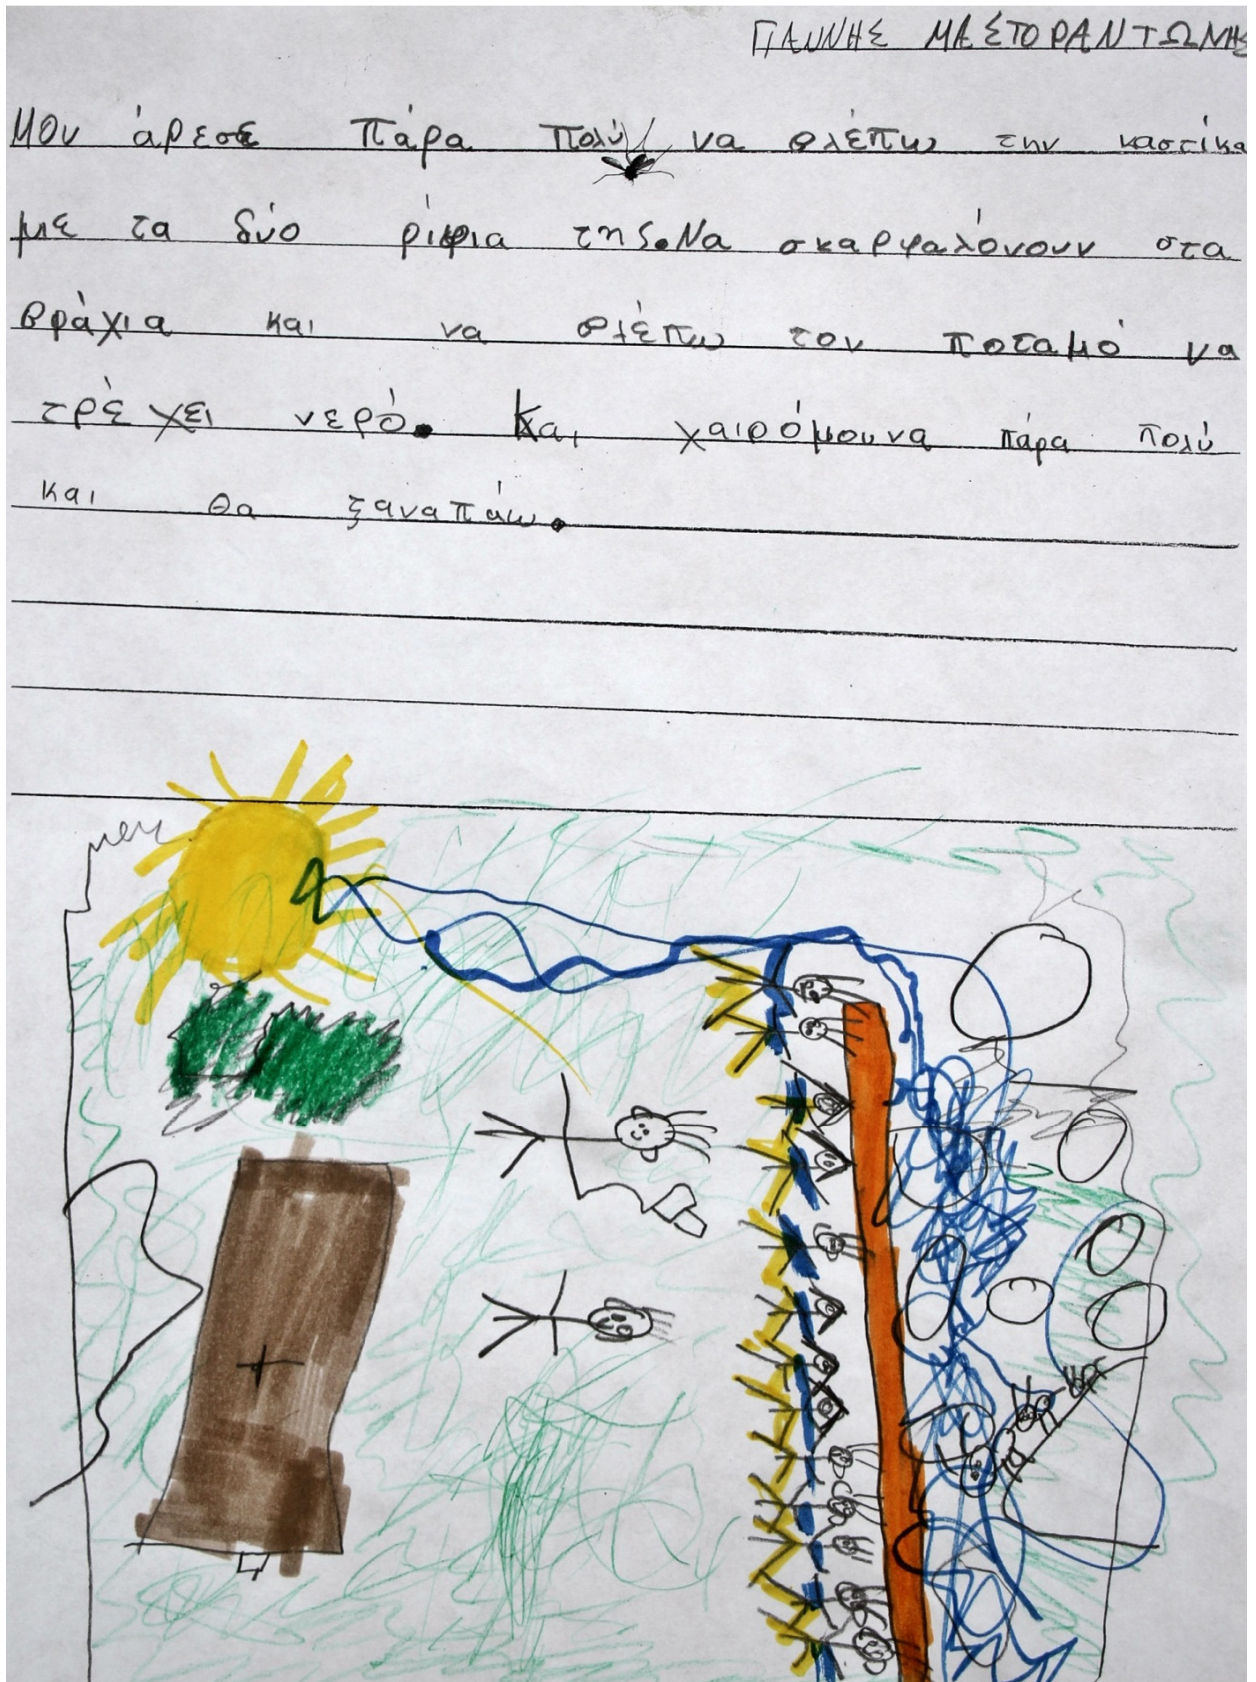 ΓΙΑΝΝΗΣ ΜΑΣΤΟΡΑΝΤΩΝΗΣ
Μου άρεσε Πάρα Πολύ να βλέπω την κατσίκα
με τα δύο ρίφια της. Να σκαρφαλόνουν στα
βράχια και να βλέπω τον ποταμό να
τρέχει νερό. Και χαιρόμουνα πάρα πολύ
και θα ξαναπάω.